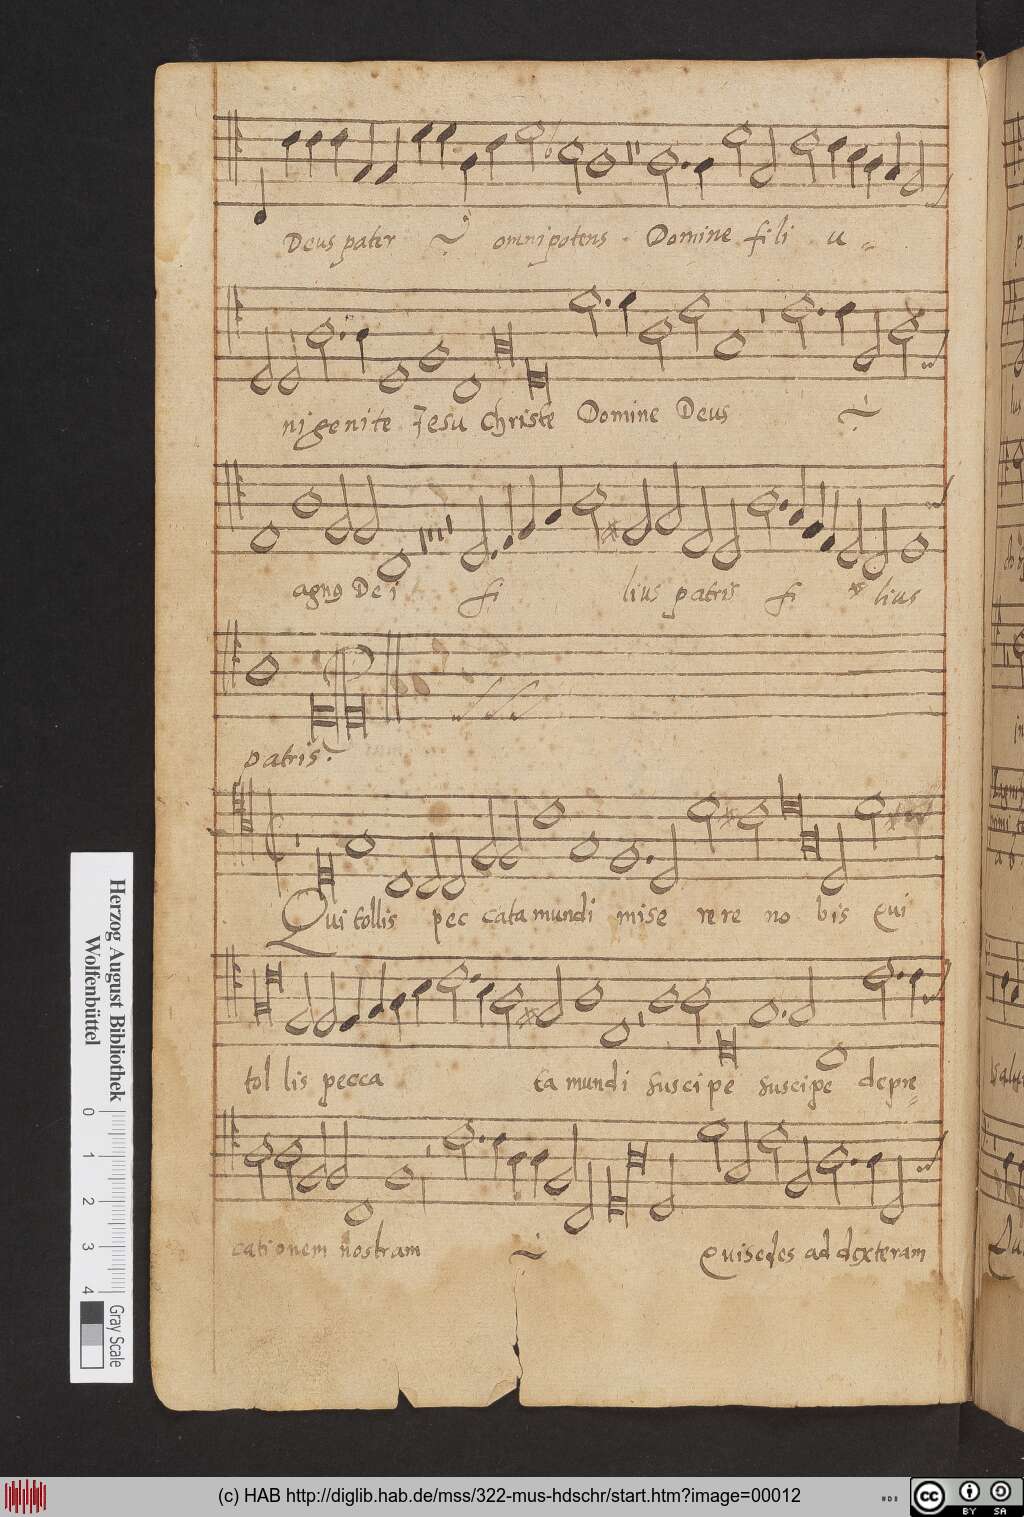 Deus pater omnipotens Domine fili u
nigenite Jesu Christe Domine Deus
agnus Dei fi lius patris fi lius
patris.
Qui tollis pec cata mundi mise re re no bis qui
tol lis pecca ta mundi suscipe suscipe depre
cationem nostram qui sedes ad dexteram
Herzog August Bibliothek
Wolfenbüttel
0 1 2 3 4
Gray Scale
(c) HAB http://diglib.hab.de/mss/322-mus-hdschr/start.htm?image=00012
cc BY SA